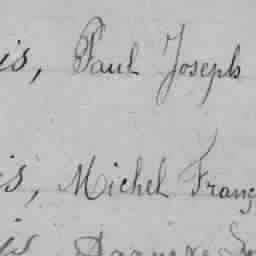 is, Paul Joseph
is, Michel Franç